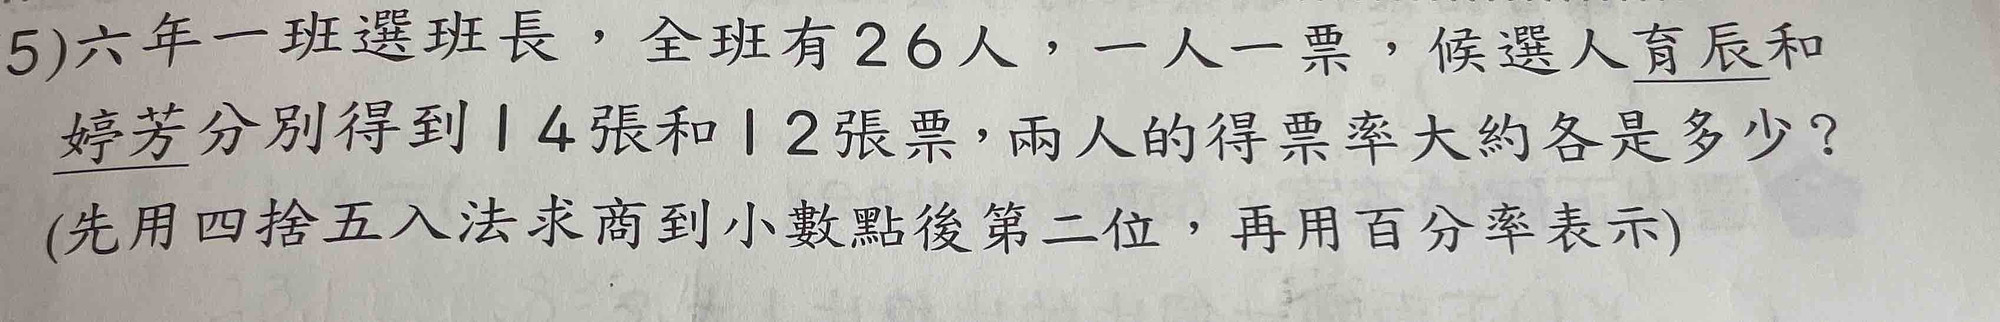 5)六年一班選班長，全班有26人，一人一票，候選人育辰和
婷芳分別得到14張和12張票，兩人的得票率大約各是多少？
(先用四捨五入法求商到小數點後第二位，再用百分率表示)